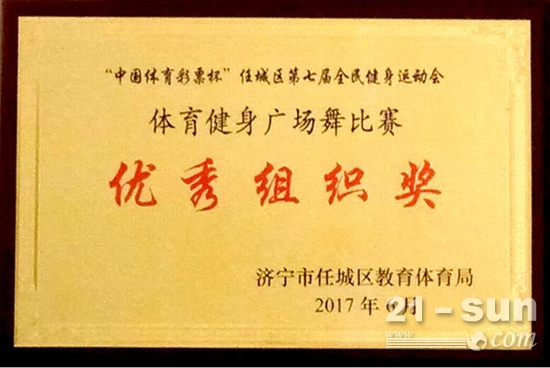 “中国体育彩票杯”任城区第七届全民健身运动会
体育健身广场舞比赛
优秀组织奖
济宁市任城区教育体育局
2017年6月
21-sun
.com